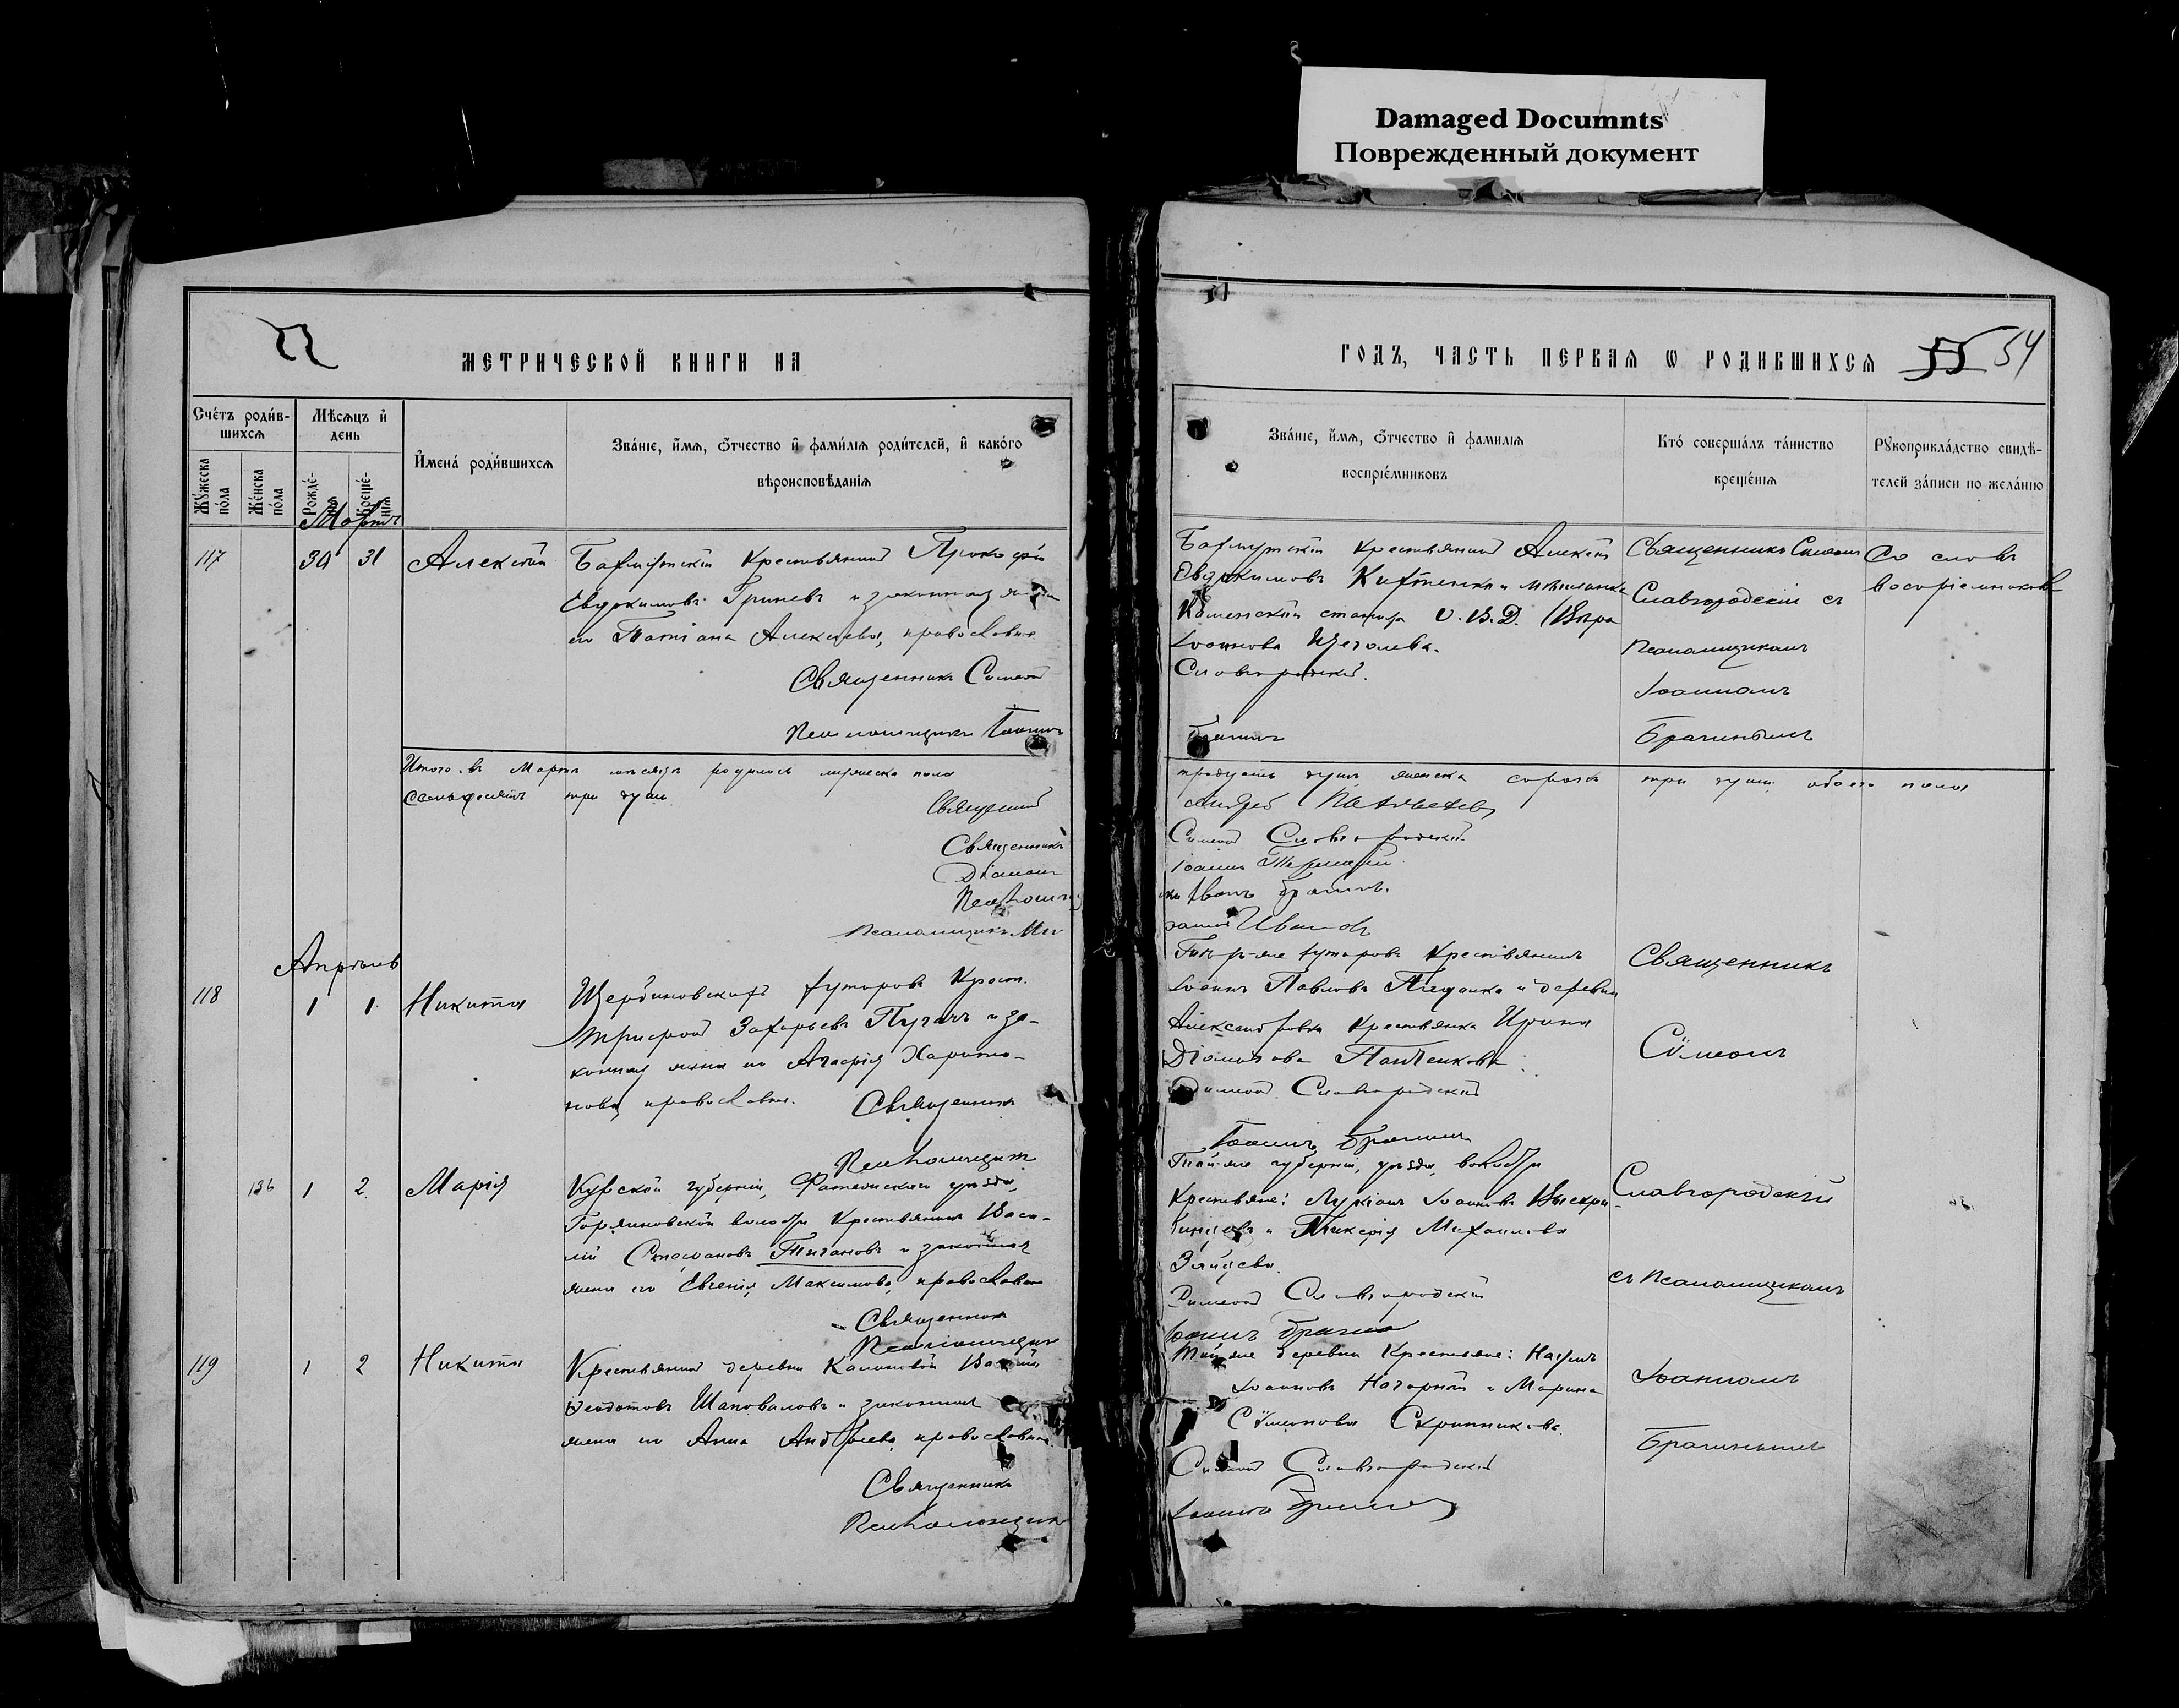 Damaged Documnts
Поврежденный документ
МЕТРИЧЕСКОЙ КНИГИ НА
ГОДЪ, ЧАСТЬ ПЕРВАЯ Ѡ РОДИВШИХСЯ
55 54
Счетъ родив-
шихся
Мѣсяцъ и
день
Мужеска
пола
Женска
пола
Рожде-
нія
Креще-
нія
Имена родившихся
Званіе, имя, отчество и фамилія родителей, и какого
вѣроисповѣданія
Званіе, имя, отчество и фамилія
воспріемниковъ
Кто совершалъ таинство
крещенія
Рукоприкладство свидѣ-
телей записи по желанію
Мартъ
117 30 31 Алексѣй
Бахмутскій крестьянинъ Прокофій
Евдокимовъ Гриневъ и законная жена
его Татіана Алексѣева, православные
Священникъ Симеонъ
Псаломщикъ Іоаннъ
Бахмутскій крестьянинъ Алексѣй
Евдокимовъ и мѣщанка
Каменской станицы О.В.Д. Вѣра
Іоаннова Щеголева.
Славгородскій.
Брагинъ
Священникъ Симеонъ
Славгородскій съ
псаломщикомъ
Іоанномъ
Брагинымъ
Со словъ
воспріемниковъ
Итого въ Мартѣ мѣсяцѣ родилось мужеска пола
тридцать душъ женска сорокъ три души обоего пола
семьдесятъ три души
Священникъ
Андрей
Священникъ
Симеонъ Славгородскій
Діаконъ
Іоаннъ
Псаломщикъ
Иванъ Брагинъ.
Псаломщикъ
Ивановъ
Апрѣль
118 1 1 Никита
Щербиновскихъ хуторовъ крест.
Трифонъ Захарьевъ Пугачъ и за-
конная жена его Агафія Харито-
нова, православные. Священникъ
Псаломщикъ
хуторовъ крестьянинъ
Іоаннъ Павловъ и деревни
Александровки крестьянка Ирина
Діомидова Панченкова
Симеонъ Славгородскій
Іоаннъ Брагинъ
Священникъ
Симеонъ
136 1 2 Марія
Курской губерніи, Фатежскаго уѣзда,
волости крестьянинъ Васи-
лій Стефановъ и законная
жена его Евгенія Максимова, православные
Священникъ
Псаломщикъ
Той-же губерніи, уѣзда, волости
крестьяне: Лукіанъ Іоанновъ
и Гликерія Михаилова
Зайцева.
Симеонъ Славгородскій
Іоаннъ Брагинъ
Славгородскій
съ псаломщикомъ
119 1 2 Никита
Крестьянинъ деревни Калиновой Василій
Ѳеодотовъ Шаповаловъ и законная
жена его Анна Андреева, православные
Священникъ
Псаломщикъ
Той-же деревни крестьяне: Наумъ
Іоанновъ Нагорный и Марина
Симонова Скрипникова.
Симеонъ Славгородскій
Іоаннъ Брагинъ
Іоанномъ
Брагинымъ